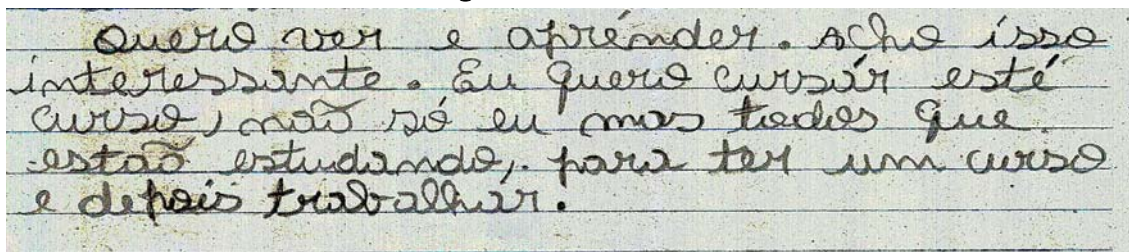 Quero ver e aprênder. Acho isso
interessante. Eu quero cursár esté
curso, não só eu mas todos que
estão estudando, para ter um curso
e depois trabalhár.